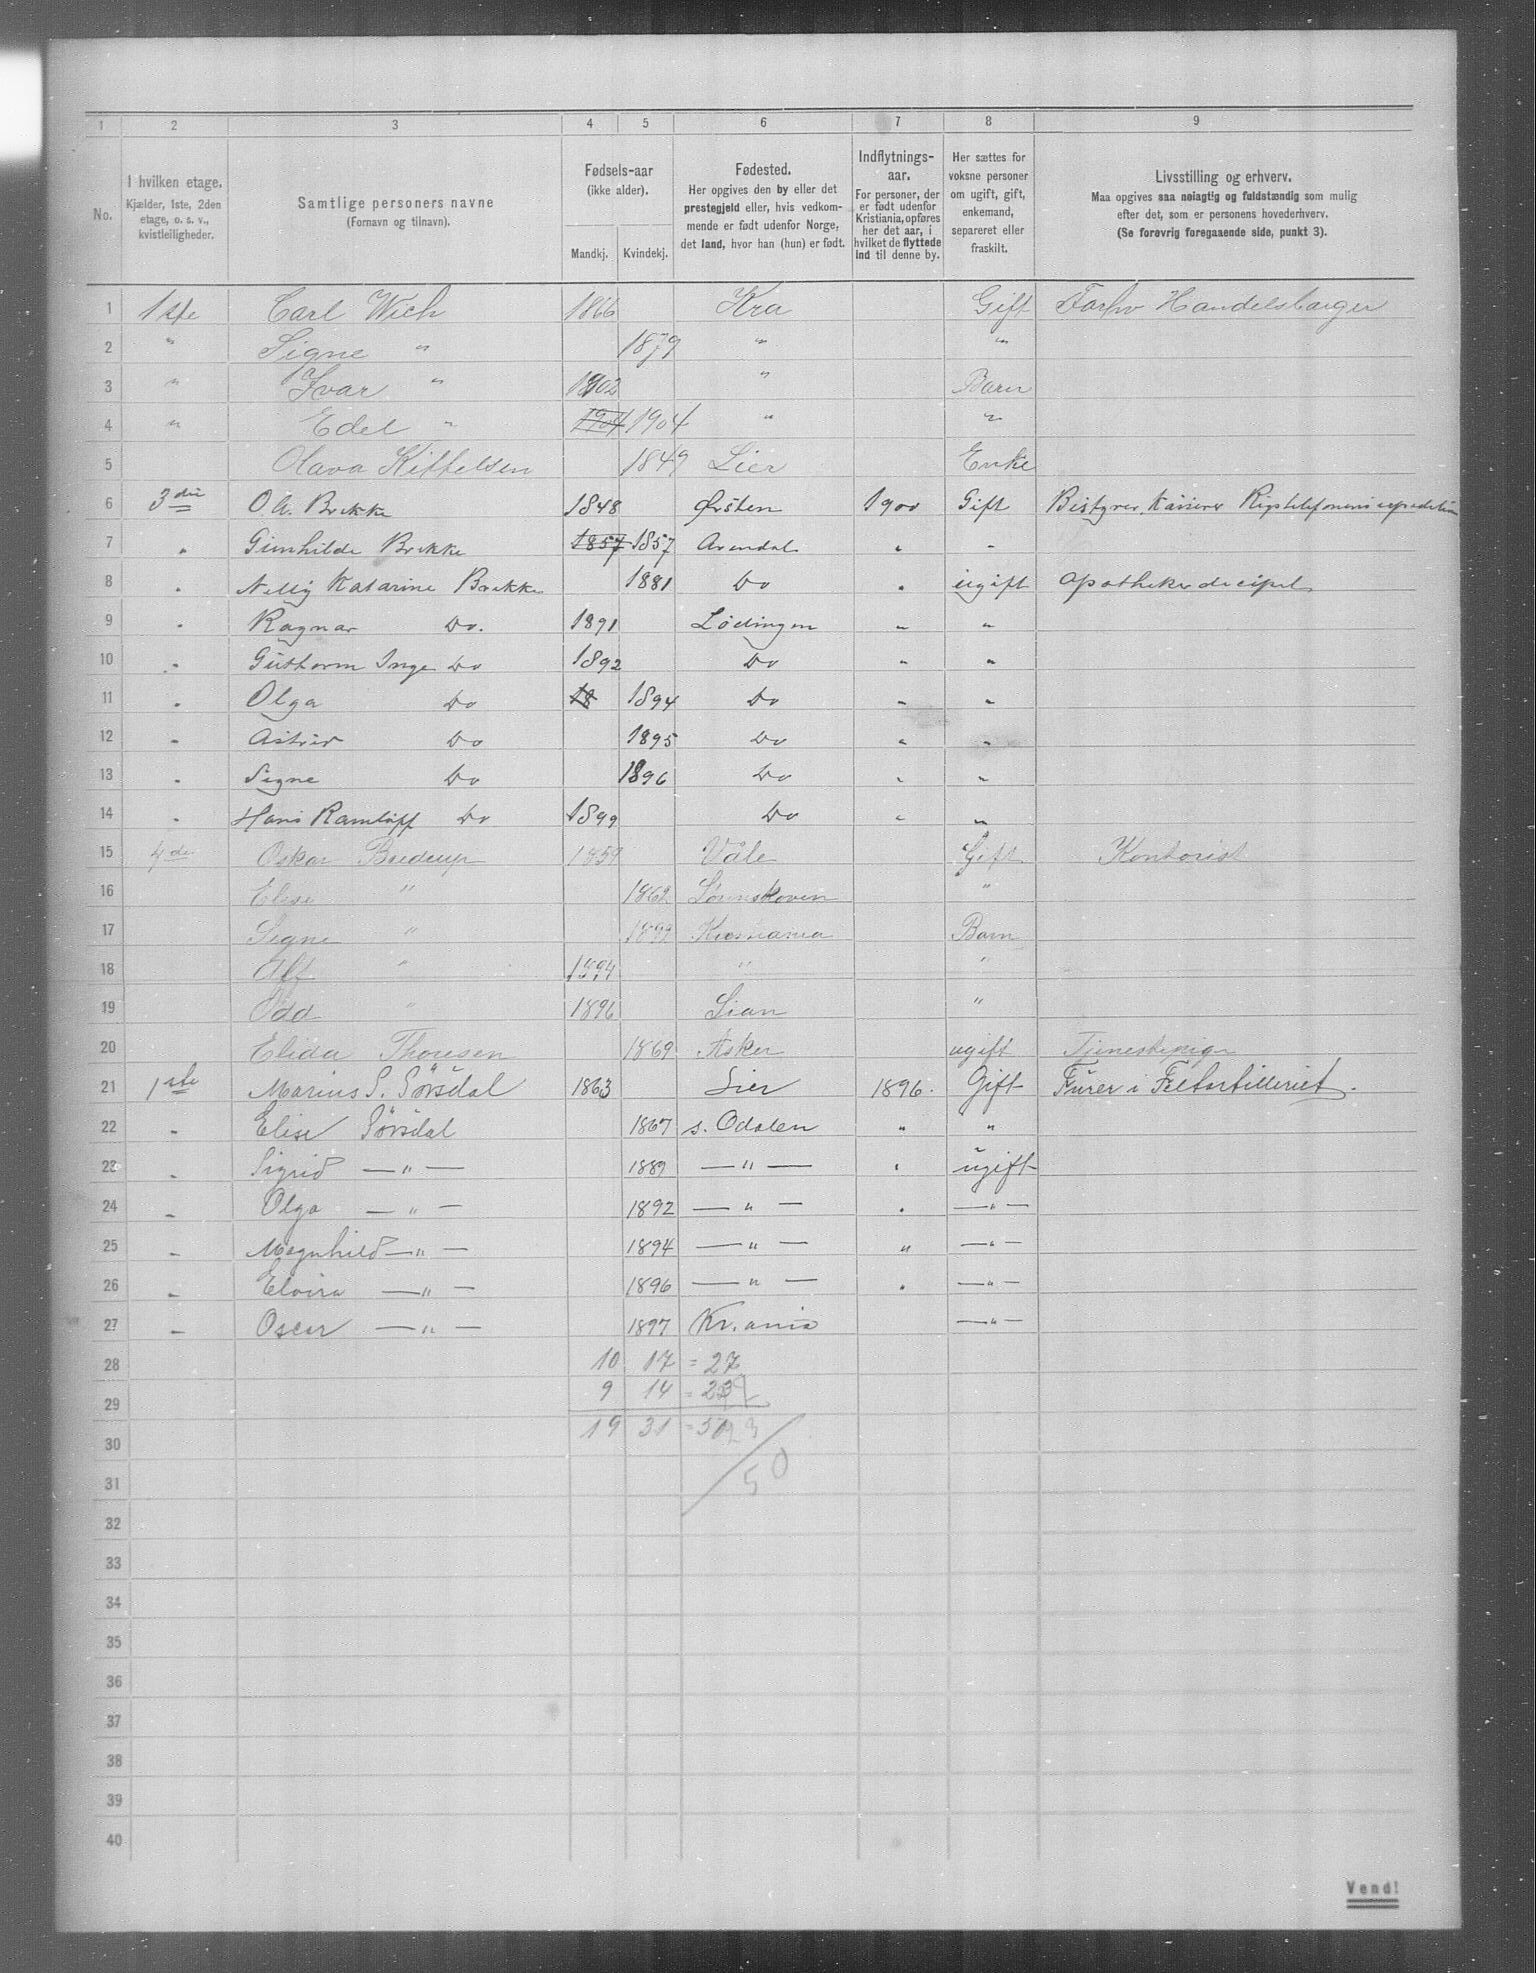 1 2 3 4 5 6 7 8 9
No.
I hvilken etage.
Kjælder, 1ste, 2den
etage, o. s. v.,
kvistleiligheder.
Samtlige personers navne
(Fornavn og tilnavn).
Fødsels-aar
(ikke alder).
Mandkj. Kvindekj.
Fødested.
Her opgives den by eller det
prestegjeld eller, hvis vedkom-
mende er født udenfor Norge,
det land, hvor han (hun) er født.
Indflytnings-
aar.
For personer, der
er født udenfor
Kristiania, opføres
her det aar, i
hvilket de flyttede
ind til denne by.
Her sættes for
voksne personer
om ugift, gift,
enkemand,
separeret eller
fraskilt.
Livsstilling og erhverv.
Maa opgives saa nøiagtig og fuldstændig som mulig
efter det, som er personens hovederhverv.
(Se forøvrig foregaaende side, punkt 3).
1 1ste Carl Wich 1866 Kra Gift Forhv Handelsborger
2 " Signe " 1879 " "
3 " Ivar " 1902 " Barn
4 " Edel " 1904 1904 " "
5 Olava Kittelsen 1849 Lier Enke
6 3die O. A. Brekke 1848 Ørsten 1900 Gift Bestyrer, Kasserer Rigstelefonens expedition
7 " Gunhilde Brekke 1857 1857 Arendal " "
8 " Nelly Katarine Brekke 1881 Do " ugift Apotheker decipel
9 " Ragnar Do. 1891 Lødingen " "
10 " Guthorm Inge Do 1892 Do " "
11 " Olga Do 18 1894 Do " "
12 " Astrid Do 1895 Do " "
13 " Signe Do 1896 Do " "
14 " Hans Ramløff Do 1899 Do " "
15 4de Oskar Bredrup 1859 Våle Gift Kontorist
16 Elise " 1862 "
17 Signe " Kristiania Barn
18 Alf " 1894 " "
19 Odd " 1896 Lian "
20 Elida Thoresen 1869 Asker ugift Tjenestepige
21 1ste Marius S. Sörsdal 1863 Lier 1896. Gift Furer i Feltartilleriet.
22 " Elise Sörsdal 1867 s. Odalen " "
23 " Sigrid — " — 1889 — " — " ugift
24 " Olga — " — 1892 — " — " — " —
25 " Magnhild — " — 1894 — " — " — " —
26 " Elvira — " — 1896 — " — " — " —
27 " Oscar — " — 1897 Kr.ania — " —
28 10 17 = 27
29 9 14 = 23
30 19 31 = 50
31 50
32
33
34
35
36
37
38
39
40
Vend!